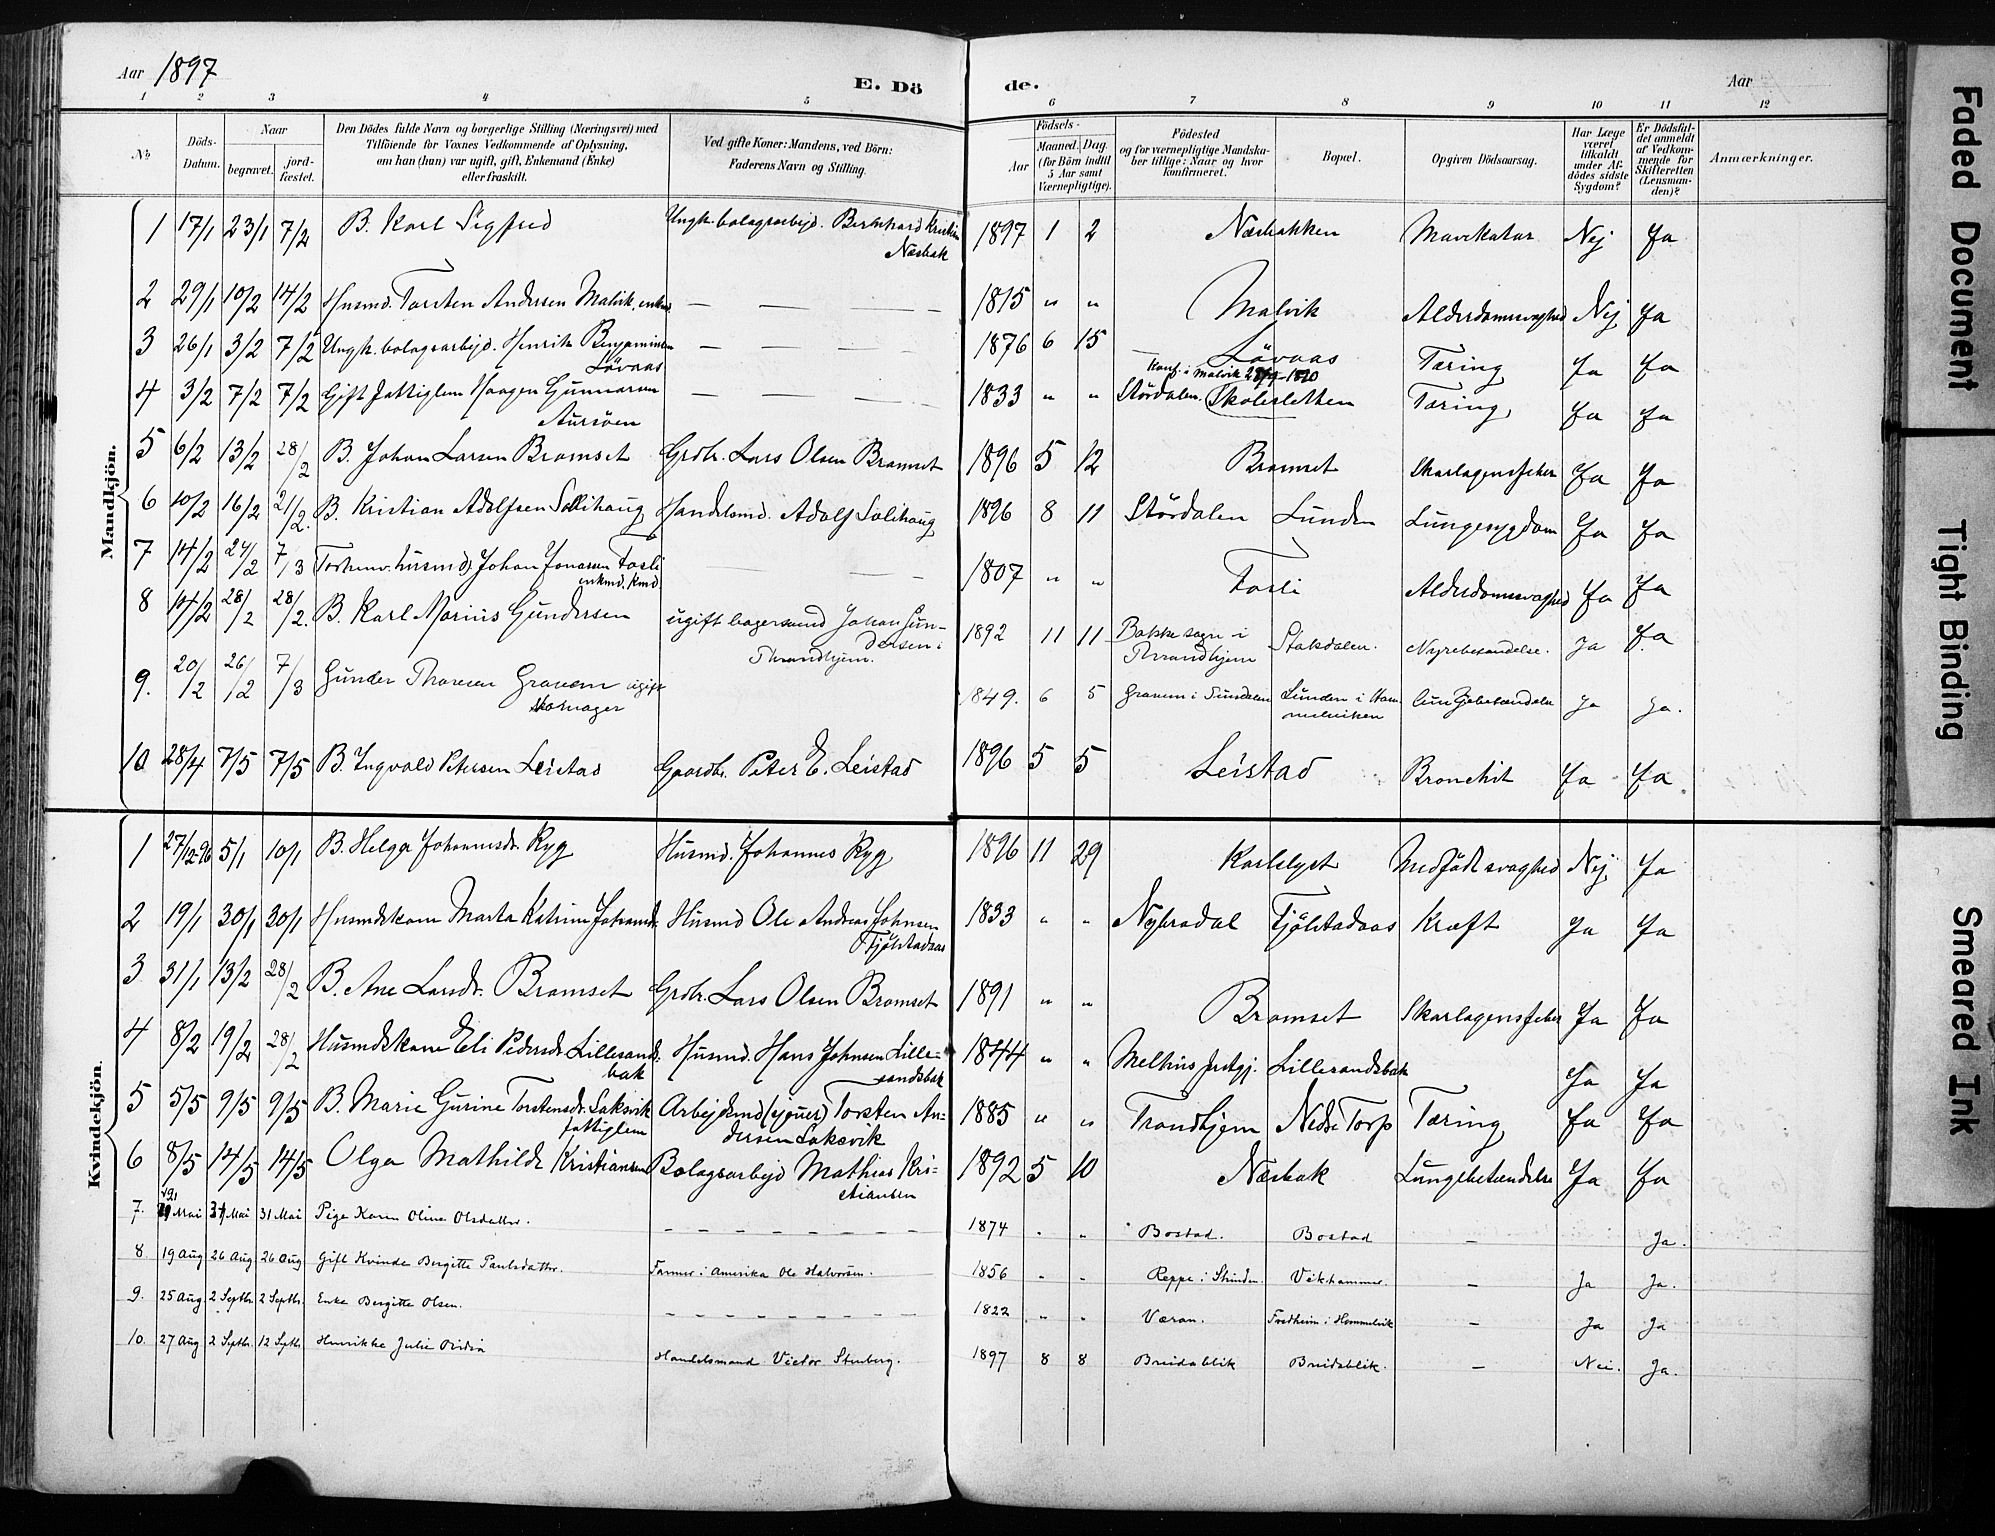 Aar 1897
E. Dö de.
Aar
1 2 3 4 5 6 7 8 9 10 11 12
No
Döds-Datum.
Naar
begravet.
jord-fæstet.
Den Dödes fulde Navn og borgerlige Stilling (Næringsvei) med
Tilföiende for Voxnes Vedkommende af Oplysning,
om han (hun) var ugift, gift, Enkemand (Enke)
eller fraskilt.
Ved gifte Koner: Mandens, ved Börn:
Faderens Navn og Stilling.
Födsels-
Aar
Maaned. Dag.
(for Börn indtil
5 Aar samt
Værnepligtige).
Födested
og for værnepligtige Mandska-
ber tillige: Naar og hvor
konfirmeret.
Bopæl.
Opgiven Dödsaarsag.
Har Læge
været
tilkaldt
under Af-
dödes sidste
Sygdom?
Er Dödsfal-
det anmeldt
af Vedkom-
mende for
Skifteretten
(Lensman-
den)?
Anmærkninger.
Mandkjön.
1 17/1 23/1 7/2 B. Karl Sigfred Ungk. bolagsarbejd. Bernhard Kristian Næsbak 1897 1 2 Næsbakken Mavekatar Nej Ja
2 29/1 10/2 14/2 Husmd. Torsten Andersen Malvik, enkmd. — — — 1815 " " Malvik Alderdomssvaghed Nej Ja
3 26/1 3/2 7/2 Ungk. bolagsarbejd. Henrik Benjaminsen Lövaas — — — 1876 6 15 Lövaas Konf. i Malvik Tæring Ja Ja
4 3/2 7/2 7/2 Gift Fattiglem Haagen Gunnarsen Aursöen — — — 1833 " " Stördalen. Skolesletten Tæring Ja Ja
5 6/2 13/2 28/2 B. Johan Larsen Bramset Grdbr. Lars Olsen Bramset 1896 5 12 Bramset Skarlagensfeber Ja Ja
6 10/2 16/2 21/2. B. Kristian Adolfsen Solihaug Handelsmd. Adolf Solihaug 1896 8 11 Stördalen Lunden Lungesygdom Ja Ja
7 14/2 24/2 7/3 husmd. Johan Jonassen Fosli enkmd. — — 1807 " " Fosli Alderdomssvaghed Ja Ja
8 14/2 28/2 28/2. B. Karl Marius Gundersen ugift bagersvend Johan Gun-dersen i Throndhjem. 1892 11 11 Bakke sogn i Throndhjem Stokdalen. Nyrebetændelse. Ja Ja
9. 20/2 26/2 7/3 Gunder Thoresen Gravem ugift skomager 1849. 6 5 Gravem i Sundalen Lunden i Hom-melviken Lungebetændelse Ja Ja.
10 28/4 7/5 7/5 B. Ingvald Petersen Leistad Gaardbr. Peter E. Leistad 1896 5 5 Leistad Bronchit Ja Ja
Kvindekjön.
1 27/12-96 5/1 10/1 B. Helga Johannesdr. Ryg Husmd. Johannes Ryg 1896 11 29 Karlslyst Medfödt svaghed Nej Ja
2 19/1 30/1 30/1 Husmdskone Marta Katrine Johansdr. Husmd Ole Andreas Johnsen Fjölstadaas 1833 " " Fjölstadaas Kræft Ja Ja
3 31/1 13/2 28/2 B. Ane Larsdr. Bramset Grdbr. Lars Olsen Bramset 1891 " " Bramset Skarlagensfeber Ja Ja
4 8/2 19/2 28/2 Husmdskone Eli Pedersdr. Lillesands-bak Husmd. Hans Johnsen Lille-sandsbak 1844 " " Melhus Prstgj. Lillesandsbak Ja Ja
5 5/5 9/5 9/5 B. Marie Gurine Torstensdr. Saksvik fattiglem Arbejdsmd Torsten An-dersen Saksvik 1885 " " Trondhjem Nedre Torp Tæring Ja Ja
6 8/5 14/5 14/5 Olga Mathilde Kristiansen Bolagsarbejd Mathias Kri-stiansen 1892 5 10 Næsbak Lungebetændelse Ja Ja
7. Mai 31 Mai 31 Mai Pige Karen Oline Olsdatter. — — — — — — — 1874 " " Bostad. Bostad — Ja.
8 19 Aug 26 Aug 26 Aug Gift Kvinde Bergitte Paulsdatter. Farmer i Amerika Ole Halvorsen. 1856 " " Reppe i Strinden. Vikhammer. — Ja Ja.
9. 25 Aug. 2 Septbr. 2 Septbr. Enke Bergitte Olsen. — — — — — — — 1822 " " Væran. Fredheim i Hommelvik — Ja Ja
10. 27 Aug 2 Septbr. 12 Septbr. Henrikke Julie Handelsmand Victor Stenberg. 1897 8 8 Breidablik Breidablik. — Nei. Ja.
Faded Document
Tight Binding
Smeared Ink